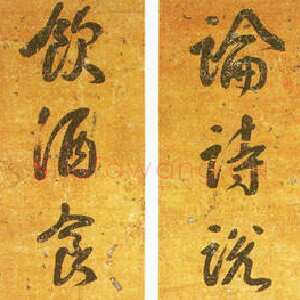 論詩說
飲酒食